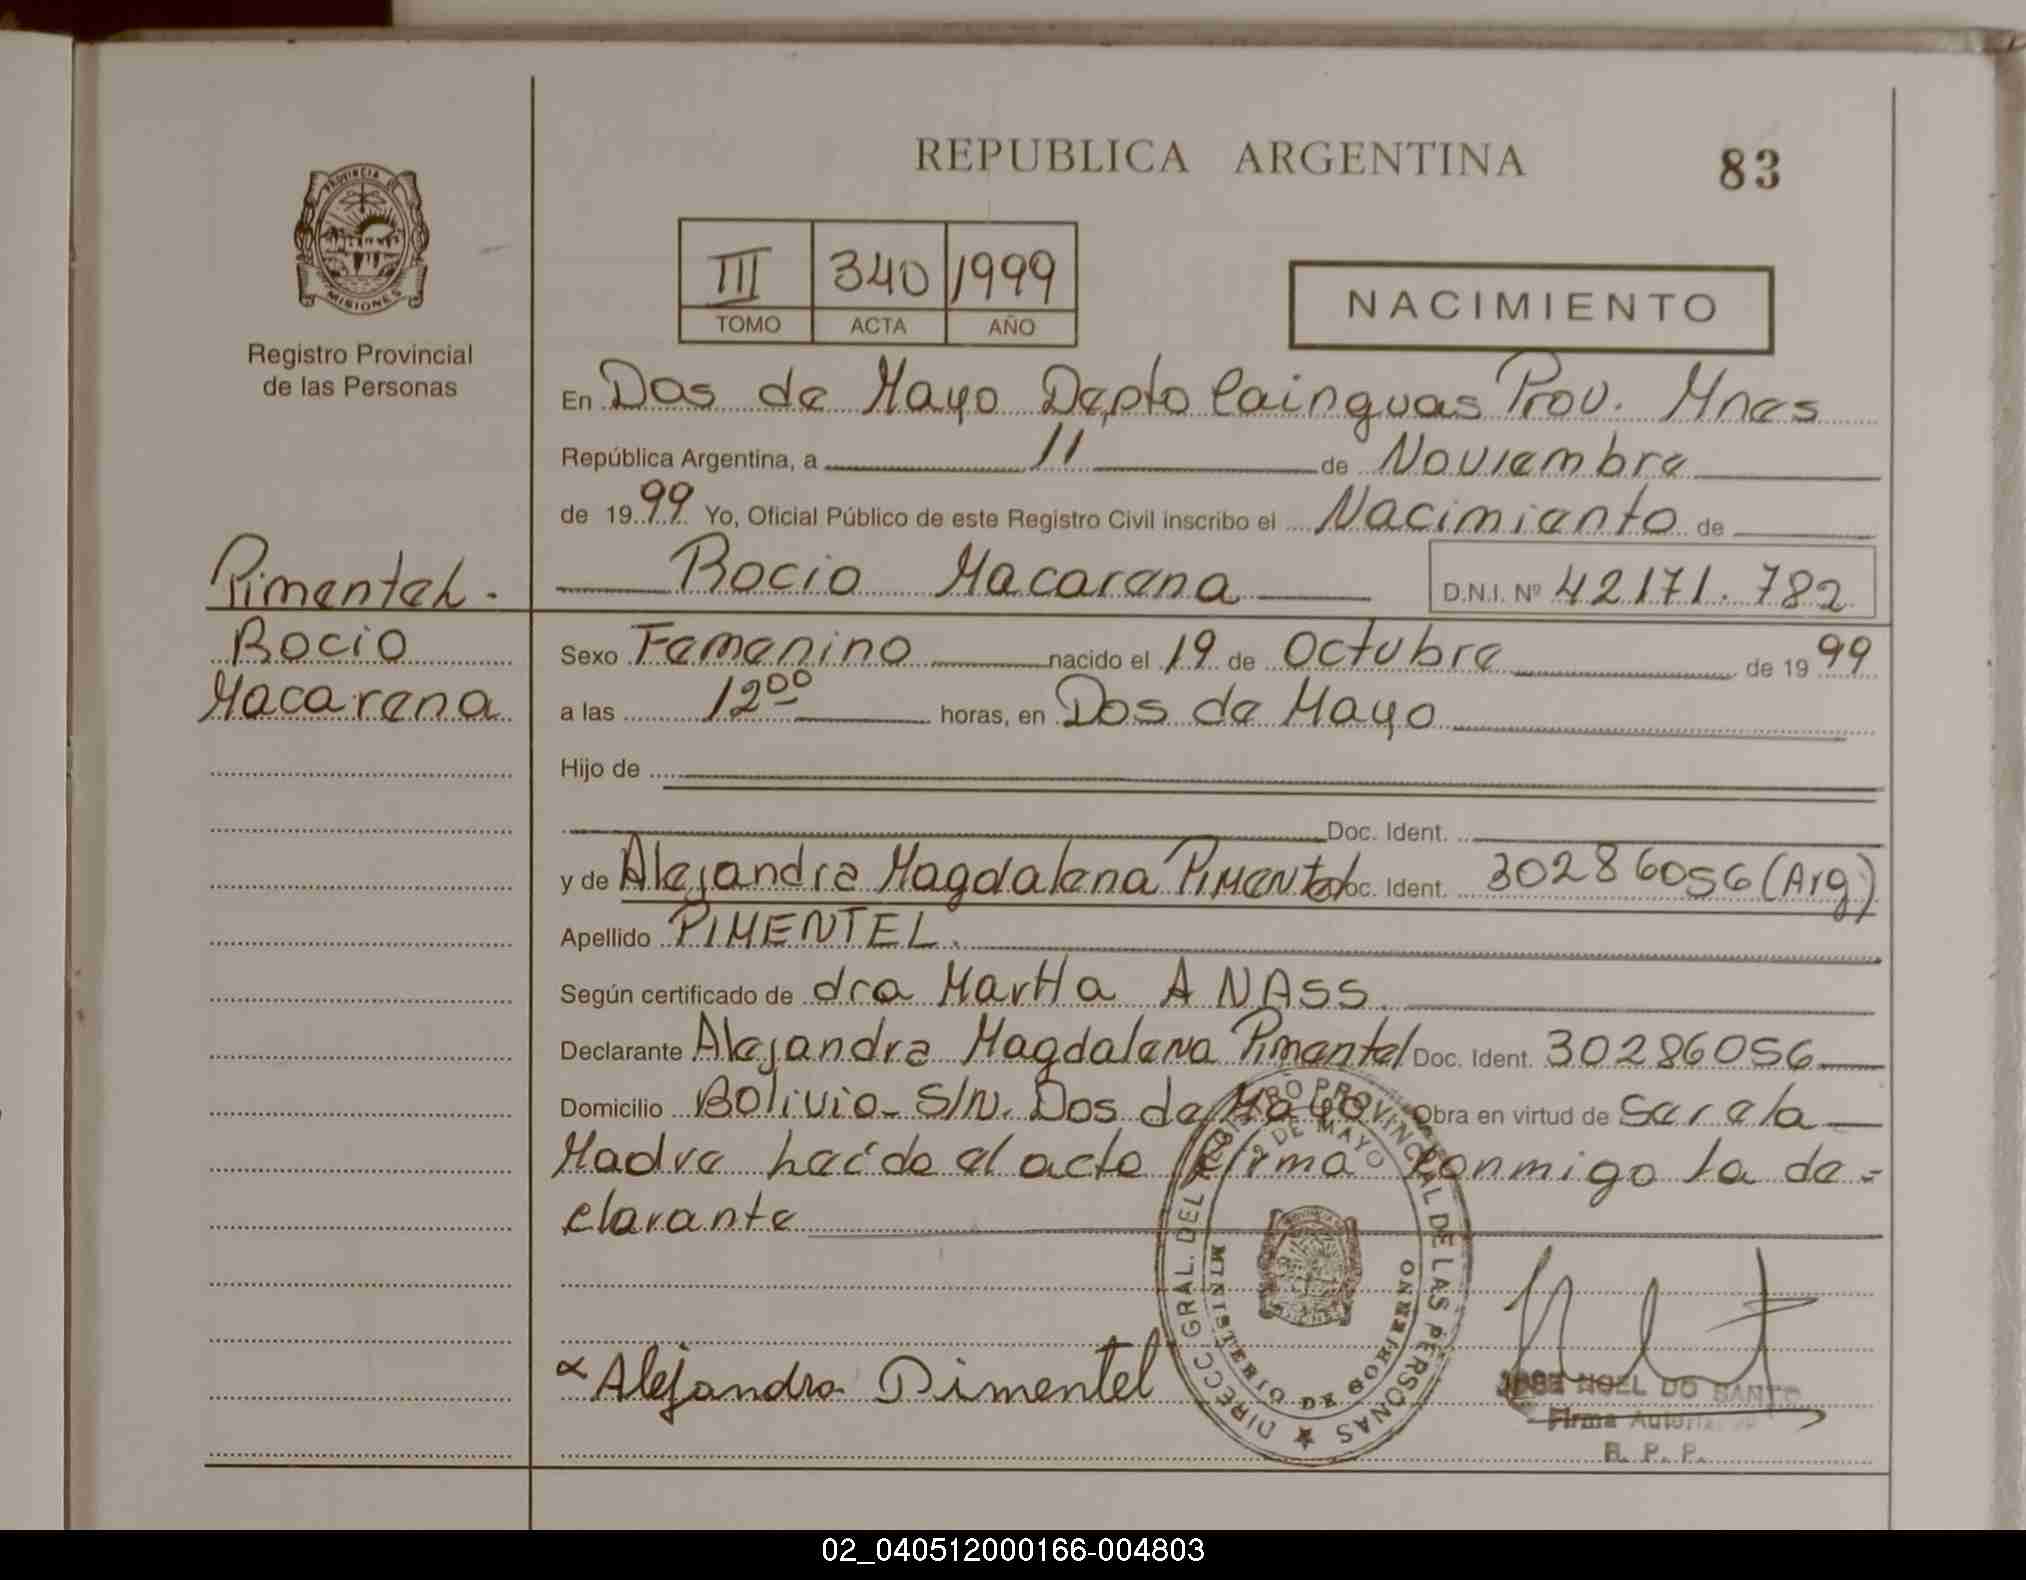 REPUBLICA ARGENTINA
83
PROVINCIA DE
MISIONES
Registro Provincial
de las Personas
III 340 1999
TOMO ACTA AÑO
NACIMIENTO
En Dos de Mayo Depto Cainguas Prov. Mnes
República Argentina, a 11 de Noviembre
de 1999 Yo, Oficial Público de este Registro Civil inscribo el Nacimiento de
Rocio Macarena D.N.I. Nº 42171.782
Pimentel.
Rocio
Macarena
Sexo Femenino nacido el 19 de Octubre de 1999
a las 12 00 horas, en Dos de Mayo
Hijo de
Doc. Ident.
y de Alejandra Magdalena PIMENtel Doc. Ident. 30286056 (Arg)
Apellido PIMENTEL.
Según certificado de dra MartHa A NASS.
Declarante Alejandra Magdalena Pimentel Doc. Ident. 30286056
Domicilio Bolivia S/N. Dos de Mayo. Obra en virtud de Ser la
Madre Leído el acta firma conmigo la de=
clarante
DIRECC GRAL. DEL REGISTRO PROVINCIAL DE LAS PERSONAS
2 DE MAYO
MINISTERIO DE GOBIERNO
Alejandra Pimentel
JOSE NOEL DO SANTO
Firma Autoriz
R. P. P.
02_040512000166-004803